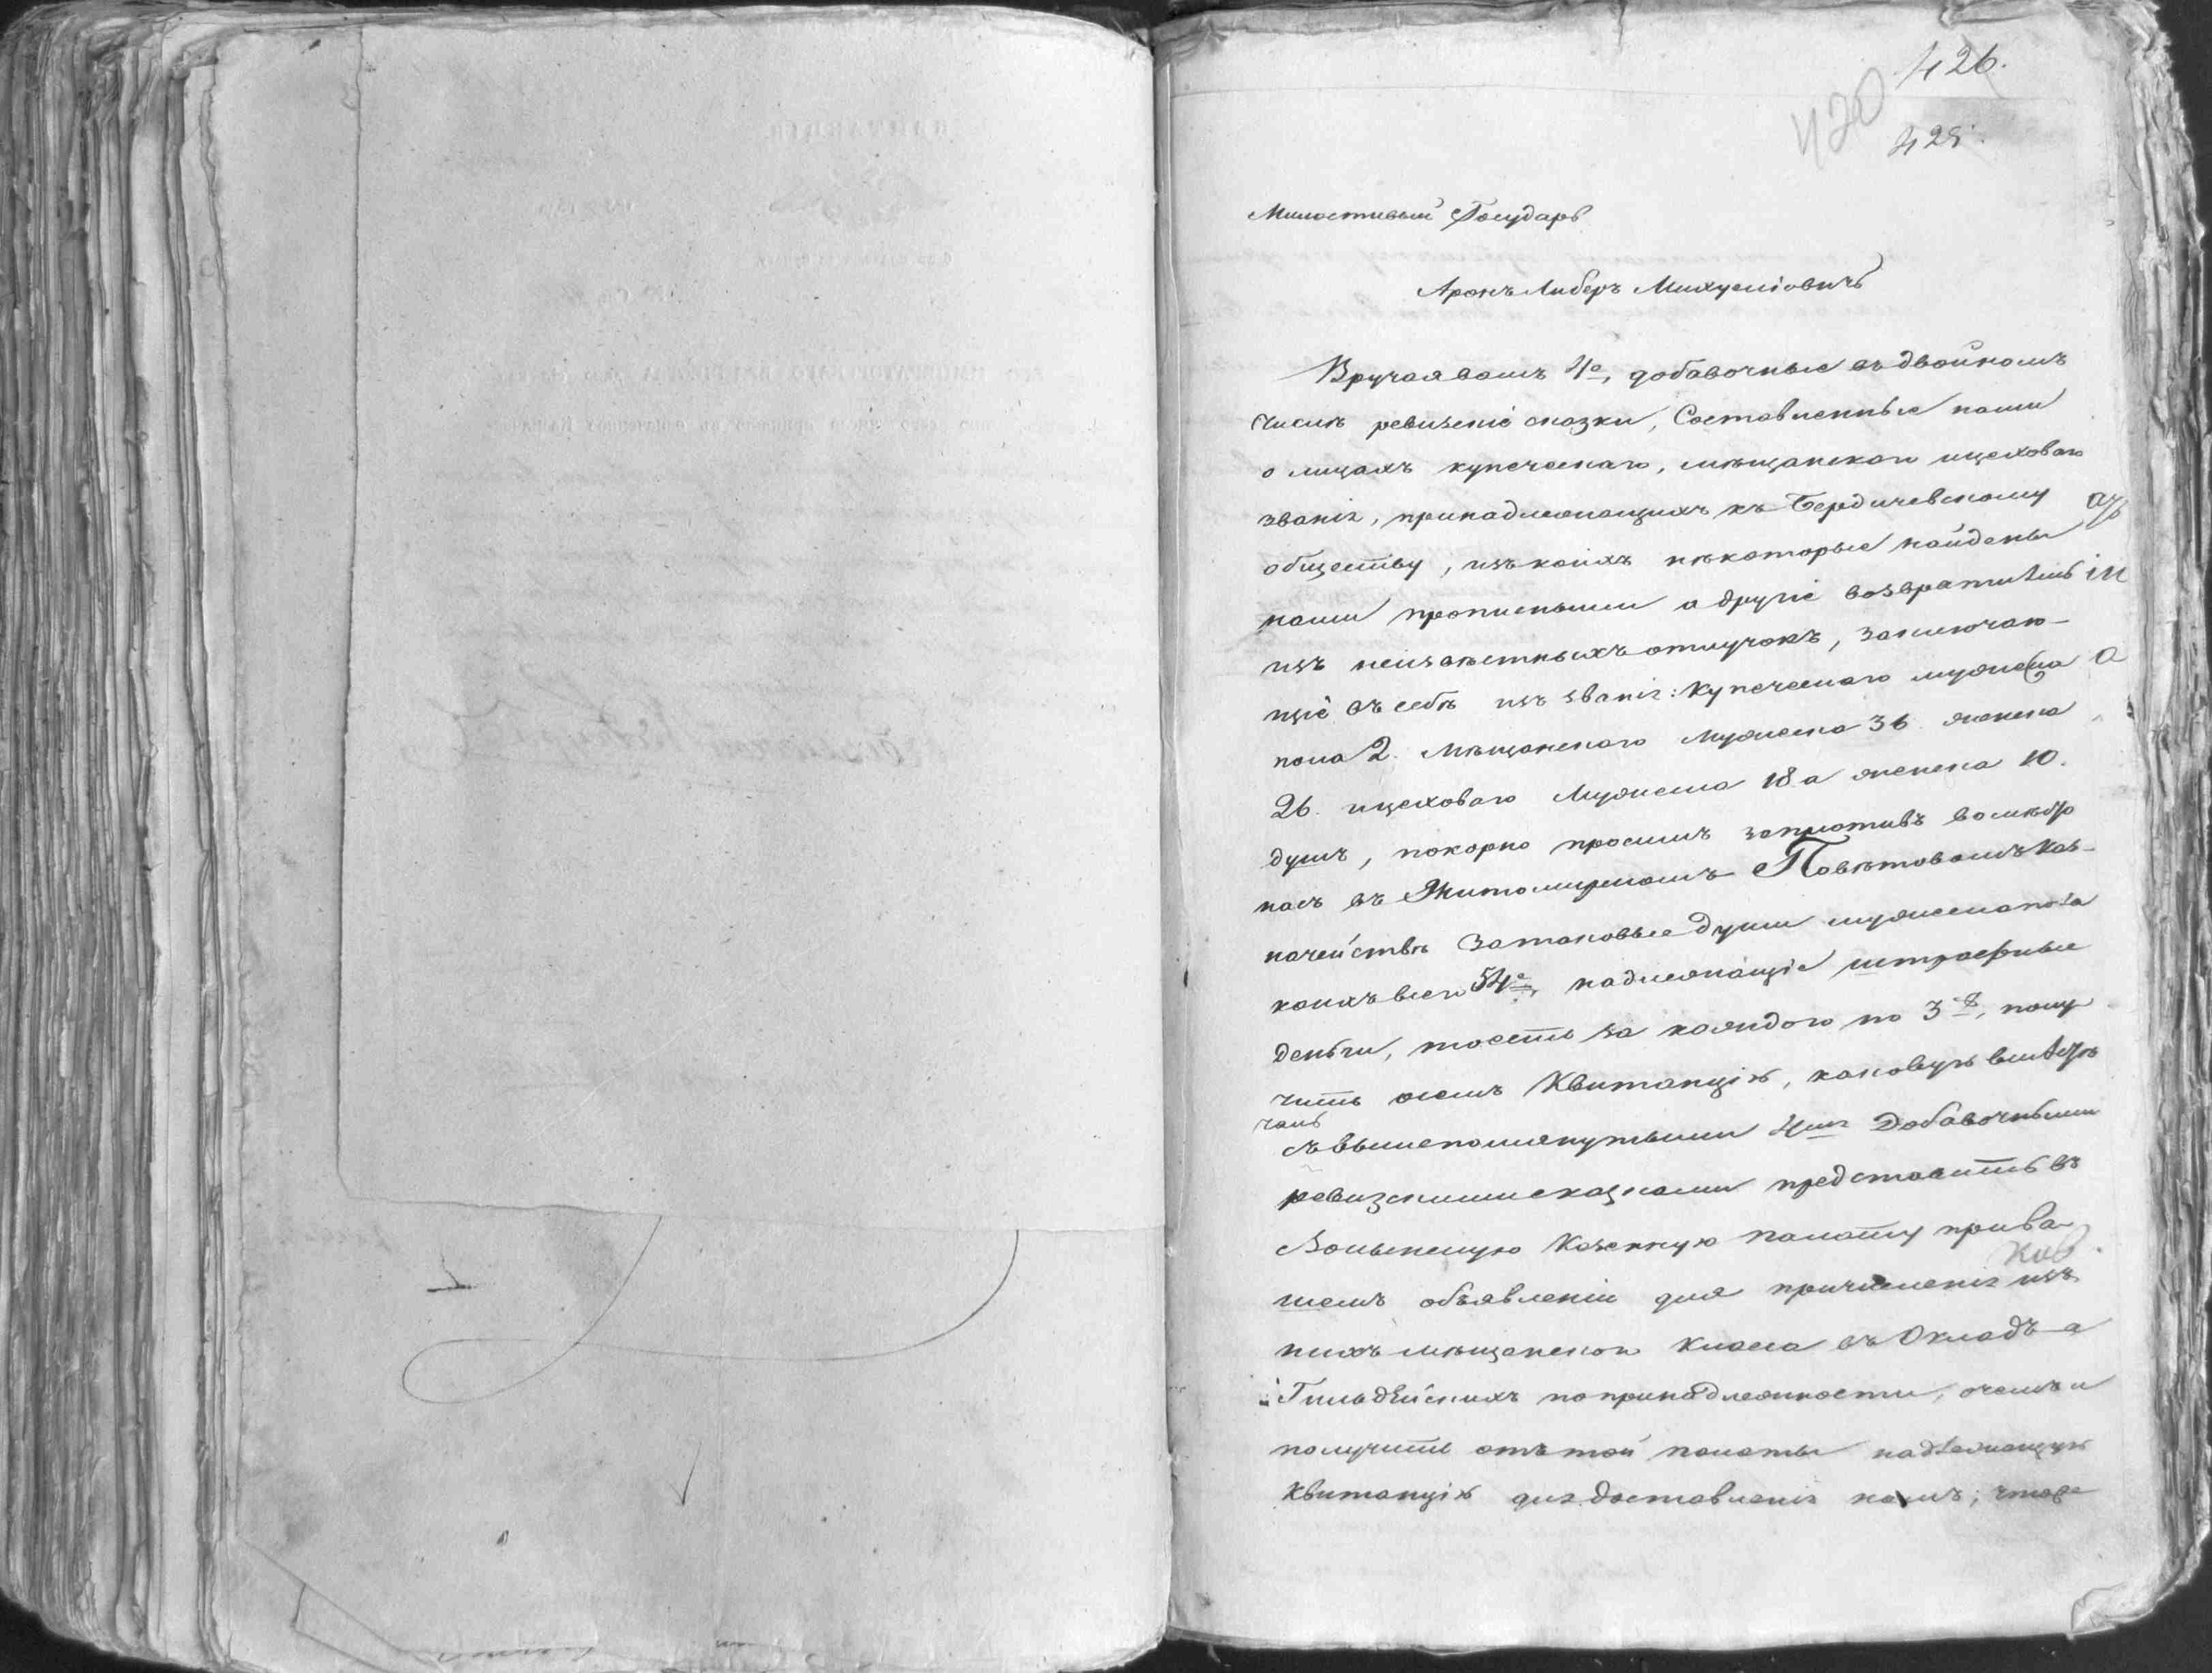 426.
420
425.
Милостивый Государь
Аронъ Либеръ Михуеліовичъ
Вручая вамъ 4е, добавочные въ двойномъ
числѣ ревизскіе сказки, Составленные нами
о лицахъ купеческаго, мѣщанскаго и цеховаго
званія, принадлежащихъ къ Бердичевскому
обществу, изъ коихъ нѣкоторые найдены
нами прописными а другіе возвратились
изъ неизвѣстныхъ отлучокъ, заключаю-
щіе въ себѣ изъ званія: Купеческаго мужеска
пола 2. Мѣщанскаго Мужеска 36 женска
26. и цеховаго Мужеска 18 а женска 10.
душъ, покорно просимъ заплотивъ вомѣсто
насъ въ Житомирскомъ Повѣтовомъ Каз-
начействѣ За таковые души мужеска пола
коихъ всего 54е, надлежащіе штрафные
деньги, тоесть за каждого по 3 полу
чить оемъ Квитанцію, каковую вмѣстѣ
съ вышепомянутыми 4ми Добавочными
ревизскими сказками представить въ
Волынскую Казенную палату при ва
шемъ объявленіи для причисленія изъ
нихъ мѣщанскои класа въ Окладъ а
Гильдѣйскихъ попринадлежности, очемъ и
получить отъ той палаты надлежащую
Квитанцію для доставленія намъ; что